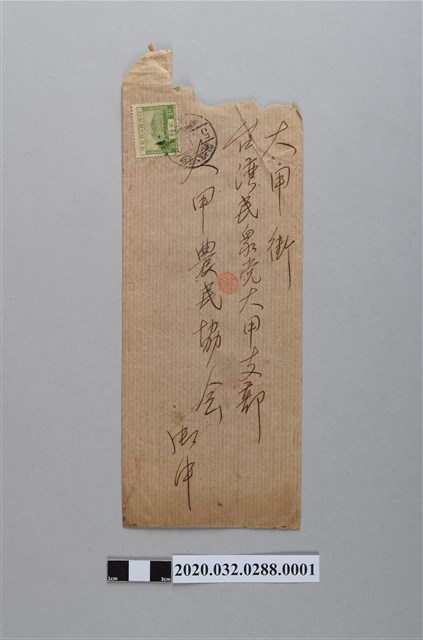 大甲街
台湾民衆党大甲支部
大甲農民協会
御中
1cm
5cm
2020.032.0288.0001